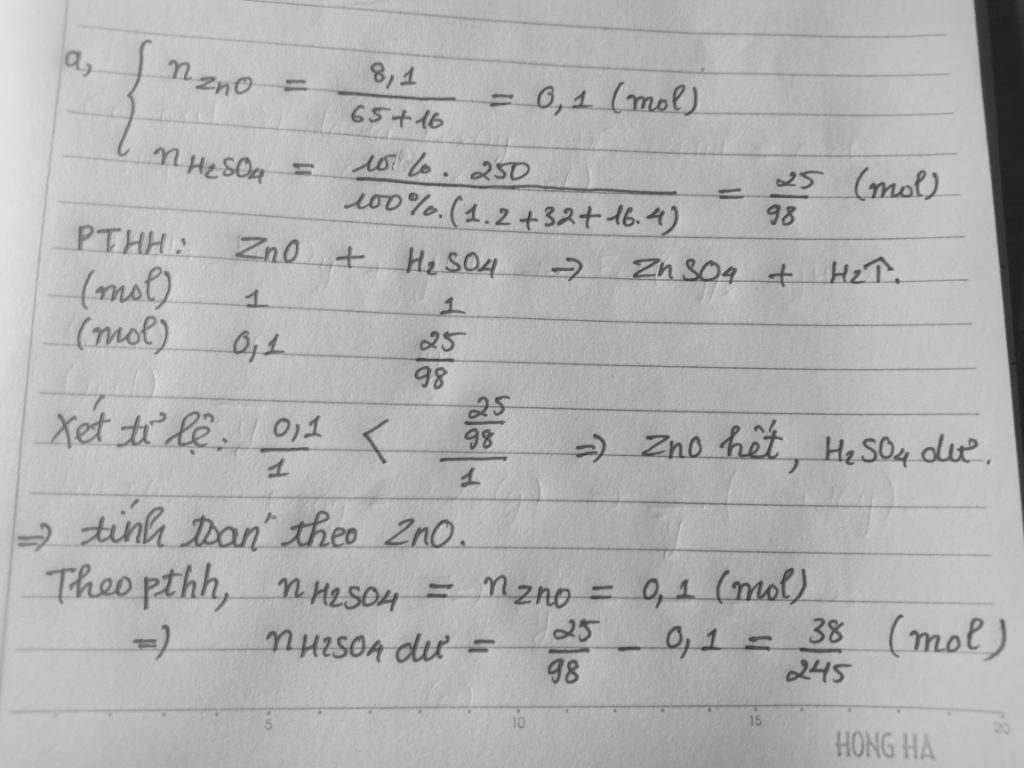 a, { n ZnO = 8,1 / (65+16) = 0,1 (mol)
n H2SO4 = 10% . 250 / 100%.(1.2+32+16.4) = 25/98 (mol)
PTHH: ZnO + H2SO4 => ZnSO4 + H2↑.
(mol) 1 1
(mol) 0,1 25/98
Xét tỉ lệ. 0,1/1 < (25/98)/1 => ZnO hết, H2SO4 dư.
=> tính toán theo ZnO.
Theo pthh, n H2SO4 = n ZnO = 0,1 (mol)
=> n H2SO4 dư = 25/98 - 0,1 = 38/245 (mol)
5 10 15 20
HONG HA